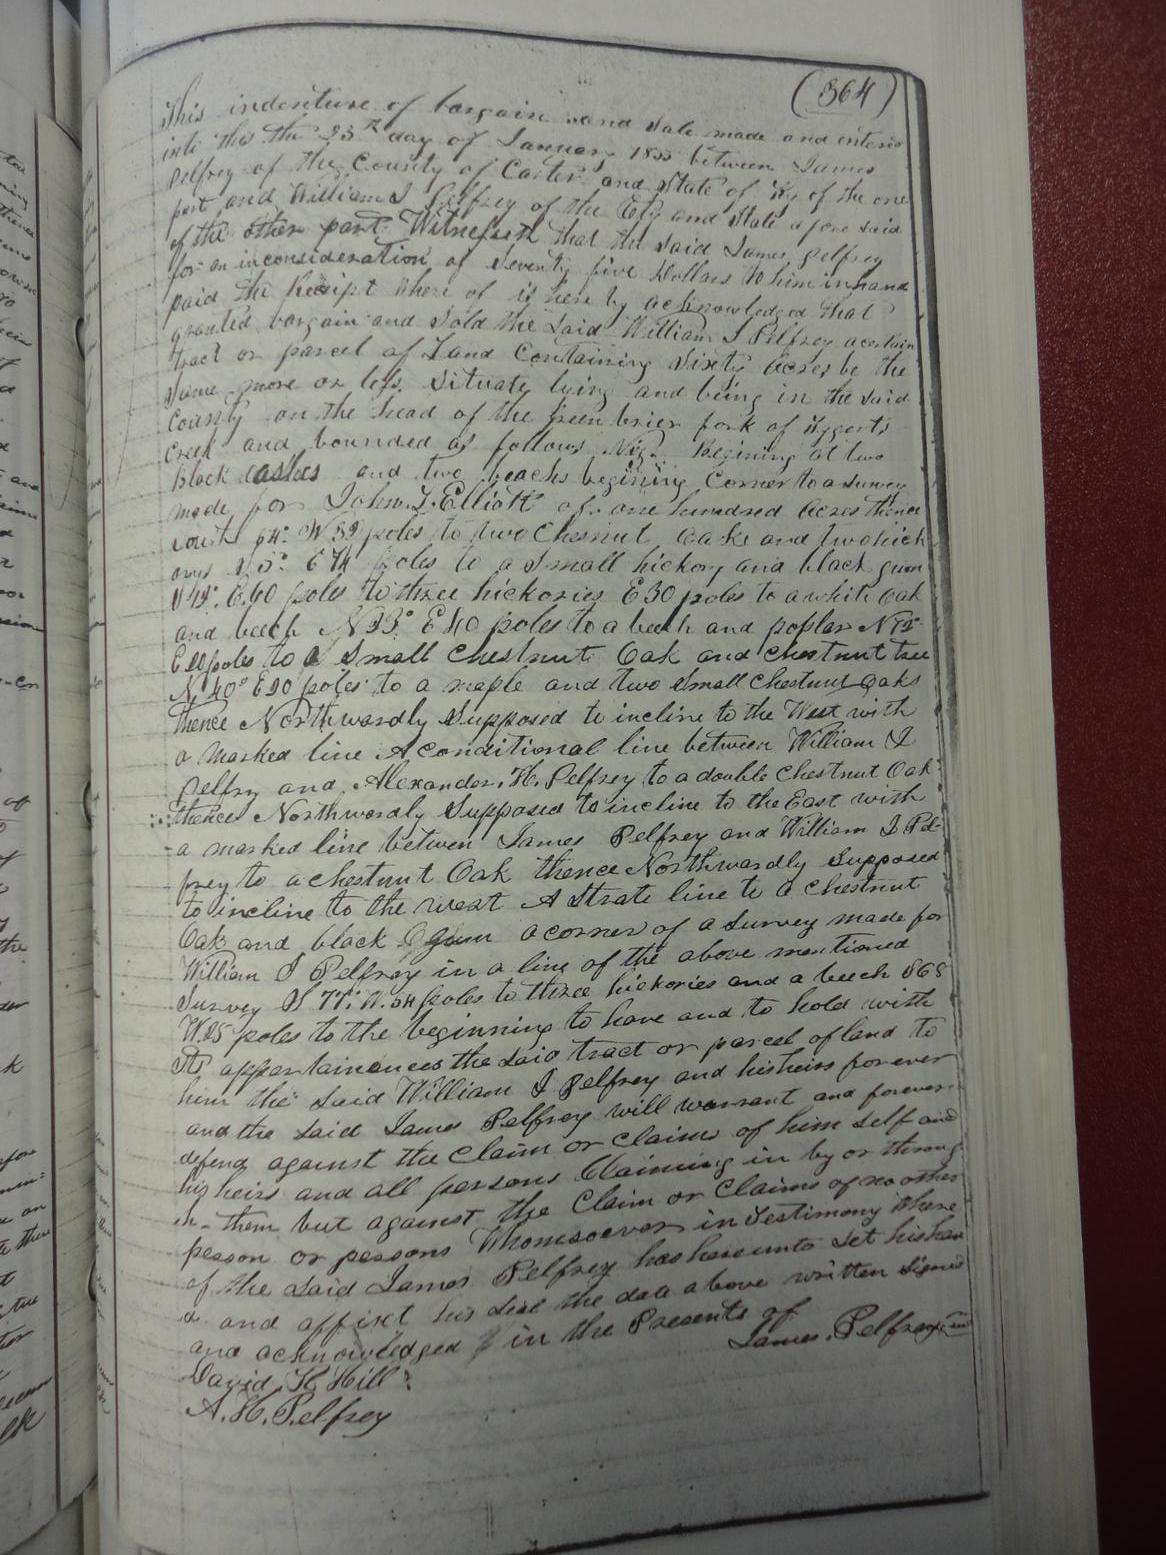 (364)
This indenture of bargain and Sale made and enterd
into this the 25th day of January 1855 between James
Pelfrey of the County of Carter and State of Ky of the one
part and William I Pelfrey of the Cty and State afore said
of the other part Witnesseth that the said James Pelfrey
for an inconsideration of Seventy five Dollars to him in hand
paid the Receipt where of is here by acknowledged that
granted bargain and Sold the Said William I Pelfrey a certain
tract or parcel of Land Containing Sixty Acres be the
Same more or less Situate lying and being in the said
County on the head of the green brier fork of Tygerts
Creek and bounded as follows Viz. Begining at two
black oashes and two beachs begining Corner to a survey
made for John. L. Elliott of one hundred Acres thence
South 64° W 52 poles to two Chestnut Oaks and two hick
orys 5° E 74 poles to a Small hickory and black gum
E. 60 poles to three hickories E 30 poles to a white Oak
and beech N 33° E 40 poles to a beech and poplar N 72°
E poles to a Small Chestnut Oak and Chestnut tree
N. 40° E 20 poles to a maple and two Small Chestnut Oaks
thence Northwardly Supposed to incline to the West with
a marked line A conditional line between William I
Pelfry and, Alexander. H. Pelfrey to a double Chestnut Oak
thence Northwardly Supposed to incline to the East with
a marked line between James Pelfrey and William I Pel-
frey to a Chestnut Oak thence Northwardly Supposed
to incline to the west A Strate line to a Chestnut
Oak and black gum a corner of a Survey made for
William I Pelfrey in a line of the above mentioned
Survey S 77° W. 54 poles to three hickories and a beech S 68
W. 25 poles to the beginning to have and to hold with
its appertainances the Said tract or parcel of land to
him the Said William I Pelfrey and his heirs forever
and the Said James Pelfrey will warrant and forever
defend against the Claim or Claims of him Self and
his heirs and all persons Claiming in by or throug
h- them but against the Claim or Claims of no other
person or persons Whomsoever in Testimony where
of the Said James Pelfrey has hereunto Set his han
d and affixt his Seal the date above written Signed
and acknowledged in the Presents of
James. Pelfrey
David. K Hill
A. H. Pelfrey